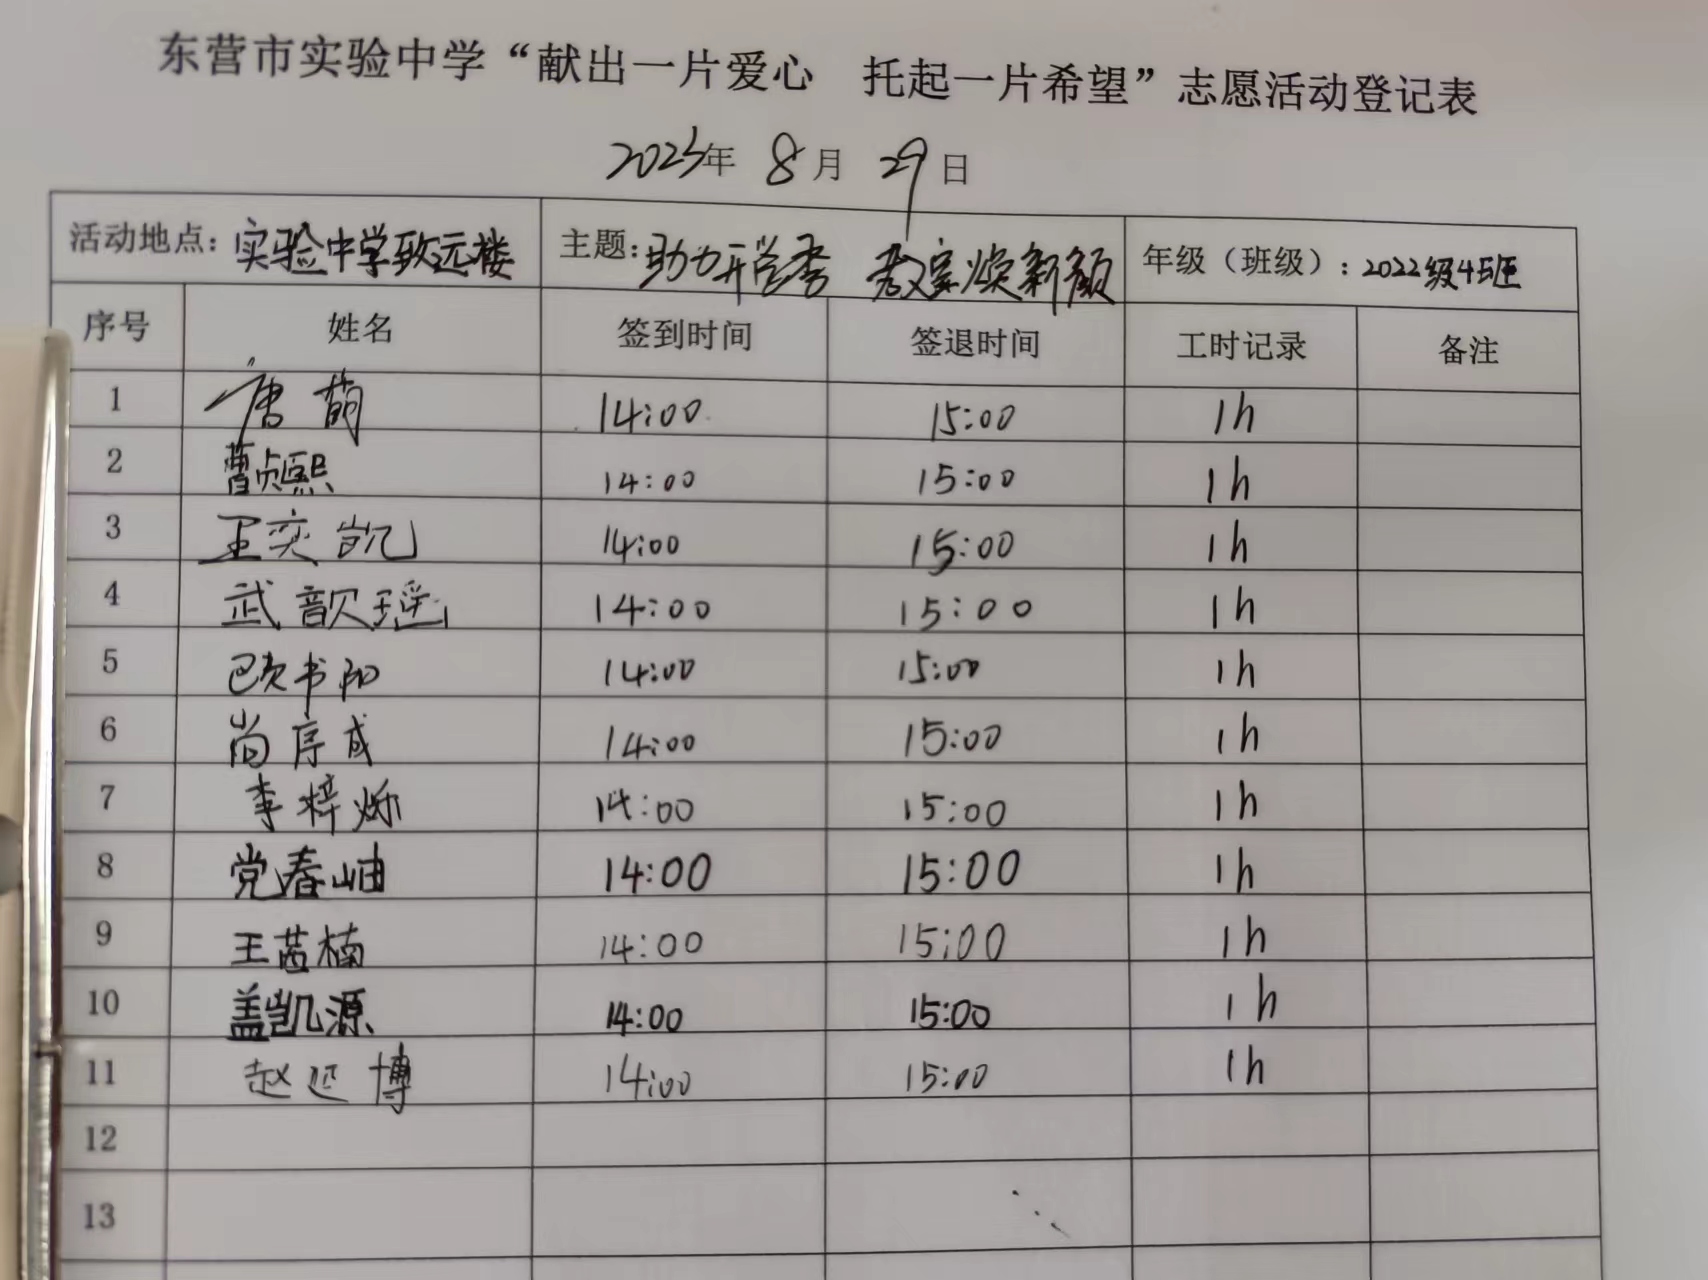 东营市实验中学“献出一片爱心 托起一片希望”志愿活动登记表
2023年 8月 29日
活动地点：实验中学致远楼 主题：助力开学季 教室焕新颜 年级（班级）：2022级4班
序号 姓名 签到时间 签退时间 工时记录 备注
1 唐萌 14:00 15:00 1h
2 曹桢熙 14:00 15:00 1h
3 王奕凯 14:00 15:00 1h
4 武歆瑶 14:00 15:00 1h
5 欧书阳 14:00 15:00 1h
6 尚序成 14:00 15:00 1h
7 李梓烁 14:00 15:00 1h
8 党春岫 14:00 15:00 1h
9 王茜楠 14:00 15:00 1h
10 盖凯源 14:00 15:00 1h
11 赵延博 14:00 15:00 1h
12
13